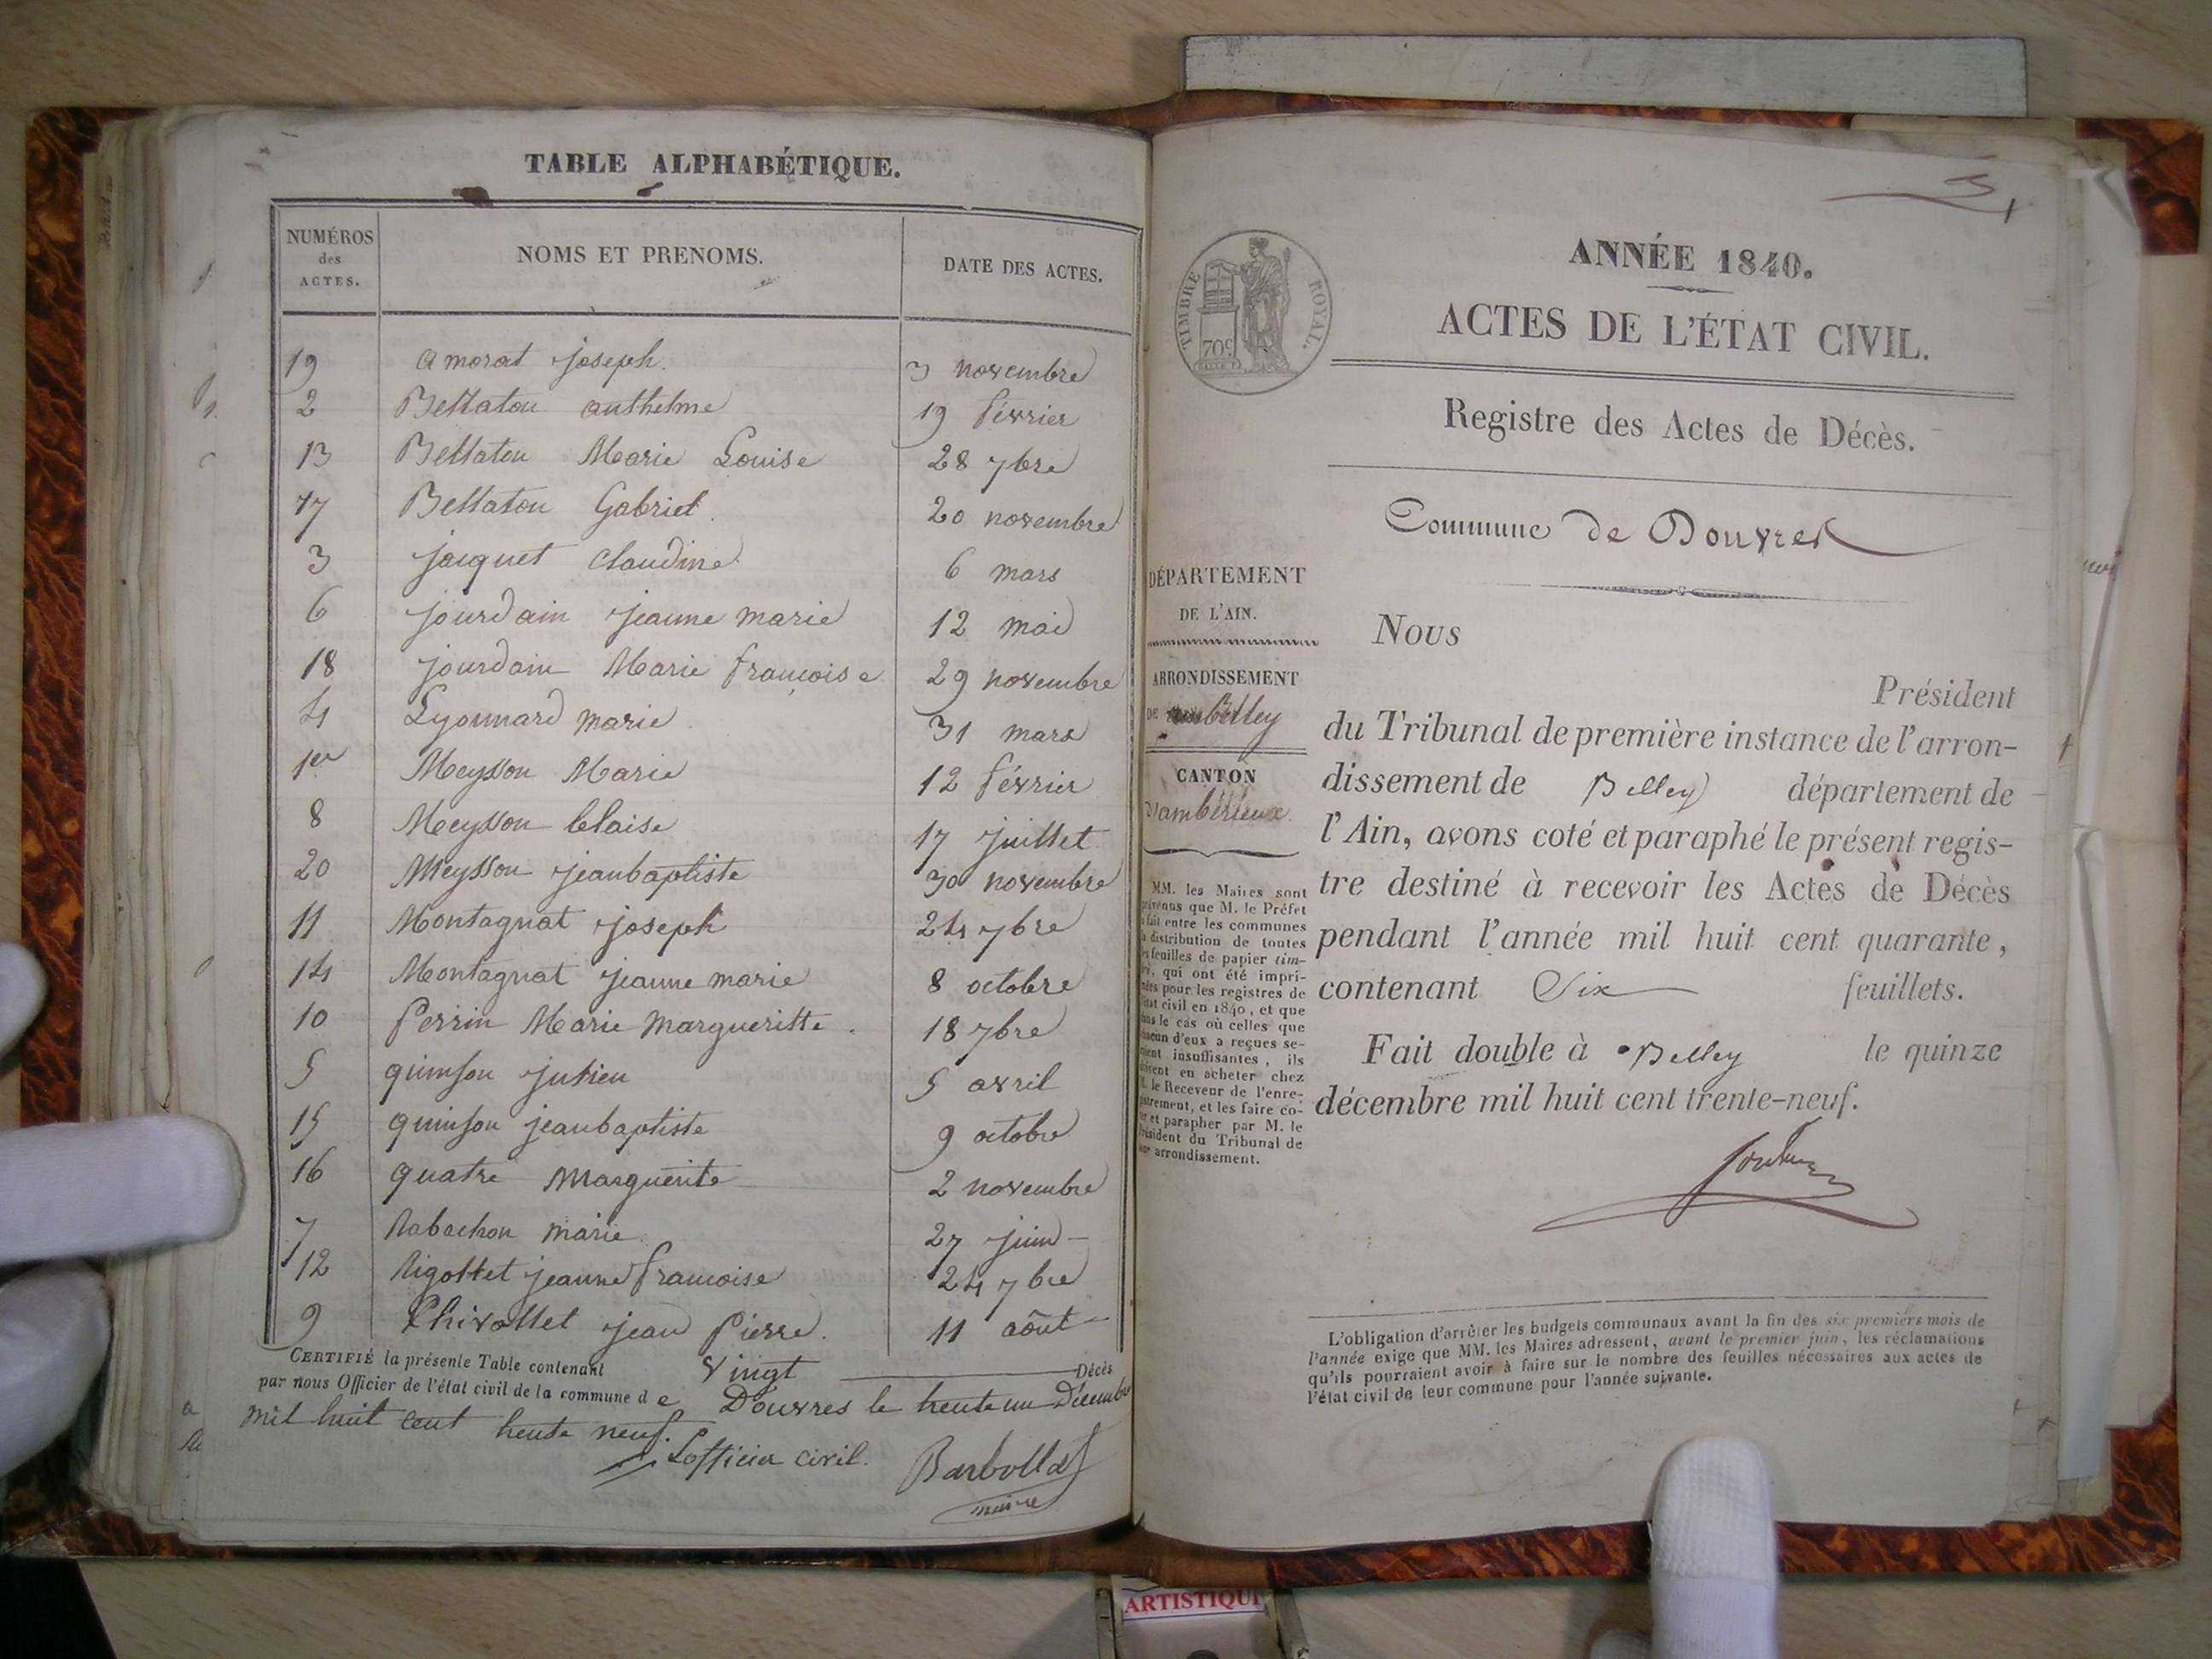 TABLE ALPHABÉTIQUE.
NUMÉROS des ACTES. NOMS ET PRENOMS. DATE DES ACTES.
19 amorat joseph. 3 novembre
2 Bellaton anthelme 19 février
13 Bellaton Marie Louise 28 7bre
17 Bellaton Gabriel. 20 novembre
3 jacquet claudine 6 mars
6 jourdain jeanne marie 12 mai
18 jourdain Marie françoise 29 novembre
4 Lyonnard marie 31 mars
1er Meysson Marie 12 février
8 Meysson blaise 17 juillet
20 Meysson jeanbaptiste 30 novembre
11 Montagnat joseph 24 7bre
14 Montagnat jeanne marie 8 octobre
10 Perrin Marie margueritte. 18 7bre
5 quinson julien 5 avril
15 quinson jeanbaptiste 9 octobre
16 quatre marguerite 2 novembre
7 Rabachon marie. 27 juin
12 Rigollet jeanne françoise 24 7bre
9 Thivollet jean Pierre. 11 août
CERTIFIÉ la présente Table contenant vingt Décès
par nous Officier de l'état civil de la commune de Douvres le trente un Décembre
mil huit cent trente neuf.
Lofficier civil. Barbollat
maire
ANNÉE 1840.
ACTES DE L'ÉTAT CIVIL.
TIMBRE ROYAL.
70c
Registre des Actes de Décès.
Commune de Douvres
DÉPARTEMENT
DE L'AIN.
ARRONDISSEMENT
DE Belley
CANTON
D'ambérieux
MM. les Maires sont
prévenus que M. le Préfet
a fait entre les communes
la distribution de toutes
les feuilles de papier tim-
bré, qui ont été impri-
mées pour les registres de
l'état civil en 1840, et que
dans le cas où celles que
chacun d'eux a reçues se-
raient insuffisantes, ils
doivent en acheter chez
M. le Receveur de l'enre-
gistrement, et les faire co-
ter et parapher par M. le
Président du Tribunal de
leur arrondissement.
Nous
Président
du Tribunal de première instance de l'arron-
dissement de Belley département de
l'Ain, avons coté et paraphé le présent regis-
tre destiné à recevoir les Actes de Décès
pendant l'année mil huit cent quarante,
contenant Six feuillets.
Fait double à Belley le quinze
décembre mil huit cent trente-neuf.
L'obligation d'arrêter les budgets communaux avant la fin des six premiers mois de
l'année exige que MM. les Maires adressent, avant le premier juin, les réclamations
qu'ils pourraient avoir à faire sur le nombre des feuilles nécessaires aux actes de
l'état civil de leur commune pour l'année suivante.
ARTISTIQUE